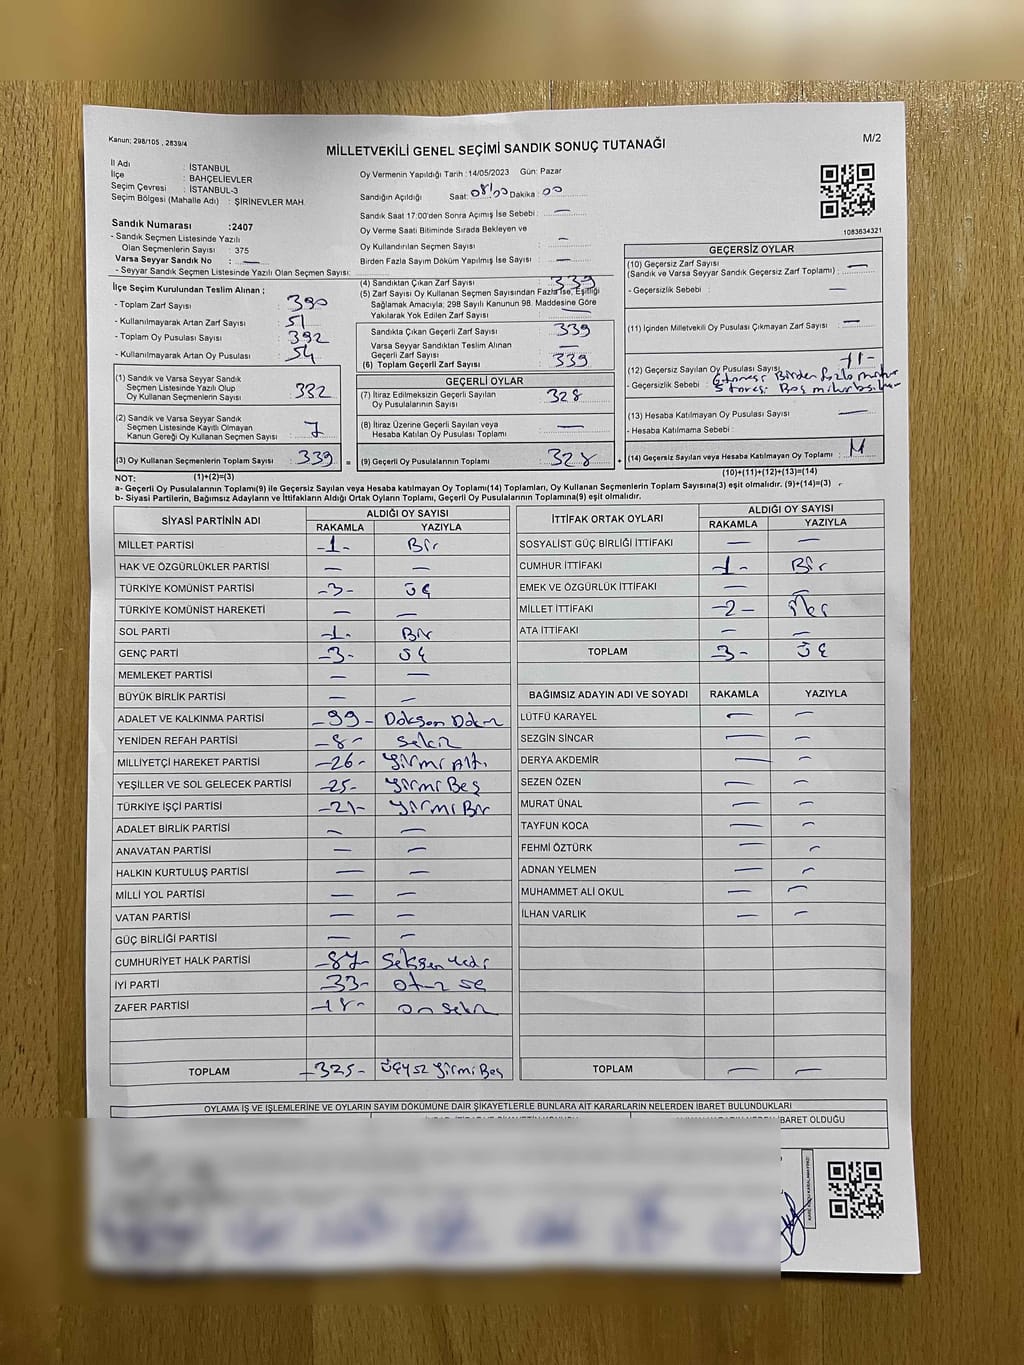 Kanun; 298/105 , 2839/4
M/2
MİLLETVEKİLİ GENEL SEÇİMİ SANDIK SONUÇ TUTANAĞI
İl Adı : İSTANBUL
İlçe : BAHÇELİEVLER
Seçim Çevresi : İSTANBUL-3
Seçim Bölgesi (Mahalle Adı) : ŞİRİNEVLER MAH.
Sandık Numarası :2407
- Sandık Seçmen Listesinde Yazılı
Olan Seçmenlerin Sayısı : 375
Varsa Seyyar Sandık No : —
- Seyyar Sandık Seçmen Listesinde Yazılı Olan Seçmen Sayısı:
Oy Vermenin Yapıldığı Tarih : 14/05/2023 Gün: Pazar
Sandığın Açıldığı Saat: 08/00 Dakika : 00
Sandık Saat 17:00'den Sonra Açımış İse Sebebi : —
Oy Verme Saati Bitiminde Sırada Bekleyen ve
Oy Kullandırılan Seçmen Sayısı : —
Birden Fazla Sayım Döküm Yapılmış İse Sayısı : —
1083634321
İlçe Seçim Kurulundan Teslim Alınan ;
- Toplam Zarf Sayısı : 390
- Kullanılmayarak Artan Zarf Sayısı : 51
- Toplam Oy Pusulası Sayısı : 392
- Kullanılmayarak Artan Oy Pusulası : 54
(1) Sandık ve Varsa Seyyar Sandık
Seçmen Listesinde Yazılı Olup
Oy Kullanan Seçmenlerin Sayısı : 332
(2) Sandık ve Varsa Seyyar Sandık
Seçmen Listesinde Kayıtlı Olmayan
Kanun Gereği Oy Kullanan Seçmen Sayısı : 7
(3) Oy Kullanan Seçmenlerin Toplam Sayısı : 339 =
(4) Sandıktan Çıkan Zarf Sayısı : 339
(5) Zarf Sayısı Oy Kullanan Seçmen Sayısından Fazla ise, Eşitliği
Sağlamak Amacıyla; 298 Sayılı Kanunun 98. Maddesine Göre
Yakılarak Yok Edilen Zarf Sayısı : —
Sandıkta Çıkan Geçerli Zarf Sayısı : 339
Varsa Seyyar Sandıktan Teslim Alınan
Geçerli Zarf Sayısı : —
(6) Toplam Geçerli Zarf Sayısı : 339
GEÇERLİ OYLAR
(7) İtiraz Edilmeksizin Geçerli Sayılan
Oy Pusulalarının Sayısı : 328
(8) İtiraz Üzerine Geçerli Sayılan veya
Hesaba Katılan Oy Pusulası Toplamı : —
(9) Geçerli Oy Pusulalarının Toplamı : 328 +
GEÇERSİZ OYLAR
(10) Geçersiz Zarf Sayısı : —
(Sandık ve Varsa Seyyar Sandık Geçersiz Zarf Toplamı)
- Geçersizlik Sebebi : —
(11) İçinden Milletvekili Oy Pusulası Çıkmayan Zarf Sayısı : —
(12) Geçersiz Sayılan Oy Pusulası Sayısı : 11-
- Geçersizlik Sebebi : 6 tanesi Birden fazla mühür
5 tanesi Boş
(13) Hesaba Katılmayan Oy Pusulası Sayısı : —
- Hesaba Katılmama Sebebi :
(14) Geçersiz Sayılan veya Hesaba Katılmayan Oy Toplamı : 11
NOT: (1)+(2)=(3) (10)+(11)+(12)+(13)=(14)
a- Geçerli Oy Pusulalarının Toplamı(9) ile Geçersiz Sayılan veya Hesaba katılmayan Oy Toplamı(14) Toplamları, Oy Kullanan Seçmenlerin Toplam Sayısına(3) eşit olmalıdır. (9)+(14)=(3)
b- Siyasi Partilerin, Bağımsız Adayların ve İttifakların Aldığı Ortak Oyların Toplamı, Geçerli Oy Pusulalarının Toplamına(9) eşit olmalıdır.
SİYASİ PARTİNİN ADI ALDIĞI OY SAYISI
RAKAMLA YAZIYLA
MİLLET PARTİSİ -1- Bir
HAK VE ÖZGÜRLÜKLER PARTİSİ — —
TÜRKİYE KOMÜNİST PARTİSİ -3- Üç
TÜRKİYE KOMÜNİST HAREKETİ — —
SOL PARTİ -1- Bir
GENÇ PARTİ -3- Üç
MEMLEKET PARTİSİ — —
BÜYÜK BİRLİK PARTİSİ — —
ADALET VE KALKINMA PARTİSİ -99- Doksan Dokuz
YENİDEN REFAH PARTİSİ -8- Sekiz
MİLLİYETÇİ HAREKET PARTİSİ -26- Yirmi Altı
YEŞİLLER VE SOL GELECEK PARTİSİ -25- Yirmi Beş
TÜRKİYE İŞÇİ PARTİSİ -21- Yirmi Bir
ADALET BİRLİK PARTİSİ — —
ANAVATAN PARTİSİ — —
HALKIN KURTULUŞ PARTİSİ — —
MİLLİ YOL PARTİSİ — —
VATAN PARTİSİ — —
GÜÇ BİRLİĞİ PARTİSİ — —
CUMHURİYET HALK PARTİSİ -87- Seksen Yedi
İYİ PARTİ -33- Otuz Üç
ZAFER PARTİSİ -18- On Sekiz
TOPLAM -325- Üçyüz Yirmi Beş
İTTİFAK ORTAK OYLARI ALDIĞI OY SAYISI
RAKAMLA YAZIYLA
SOSYALİST GÜÇ BİRLİĞİ İTTİFAKI — —
CUMHUR İTTİFAKI -1- Bir
EMEK VE ÖZGÜRLÜK İTTİFAKI — —
MİLLET İTTİFAKI -2- İki
ATA İTTİFAKI — —
TOPLAM -3- Üç
BAĞIMSIZ ADAYIN ADI VE SOYADI RAKAMLA YAZIYLA
LÜTFÜ KARAYEL — —
SEZGİN SİNCAR — —
DERYA AKDEMİR — —
SEZEN ÖZEN — —
MURAT ÜNAL — —
TAYFUN KOCA — —
FEHMİ ÖZTÜRK — —
ADNAN YELMEN — —
MUHAMMET ALİ OKUL — —
İLHAN VARLIK — —
TOPLAM — —
OYLAMA İŞ VE İŞLEMLERİNE VE OYLARIN SAYIM DÖKÜMÜNE DAİR ŞİKAYETLERLE BUNLARA AİT KARARLARIN NELERDEN İBARET BULUNDUKLARI
İBARET OLDUĞU